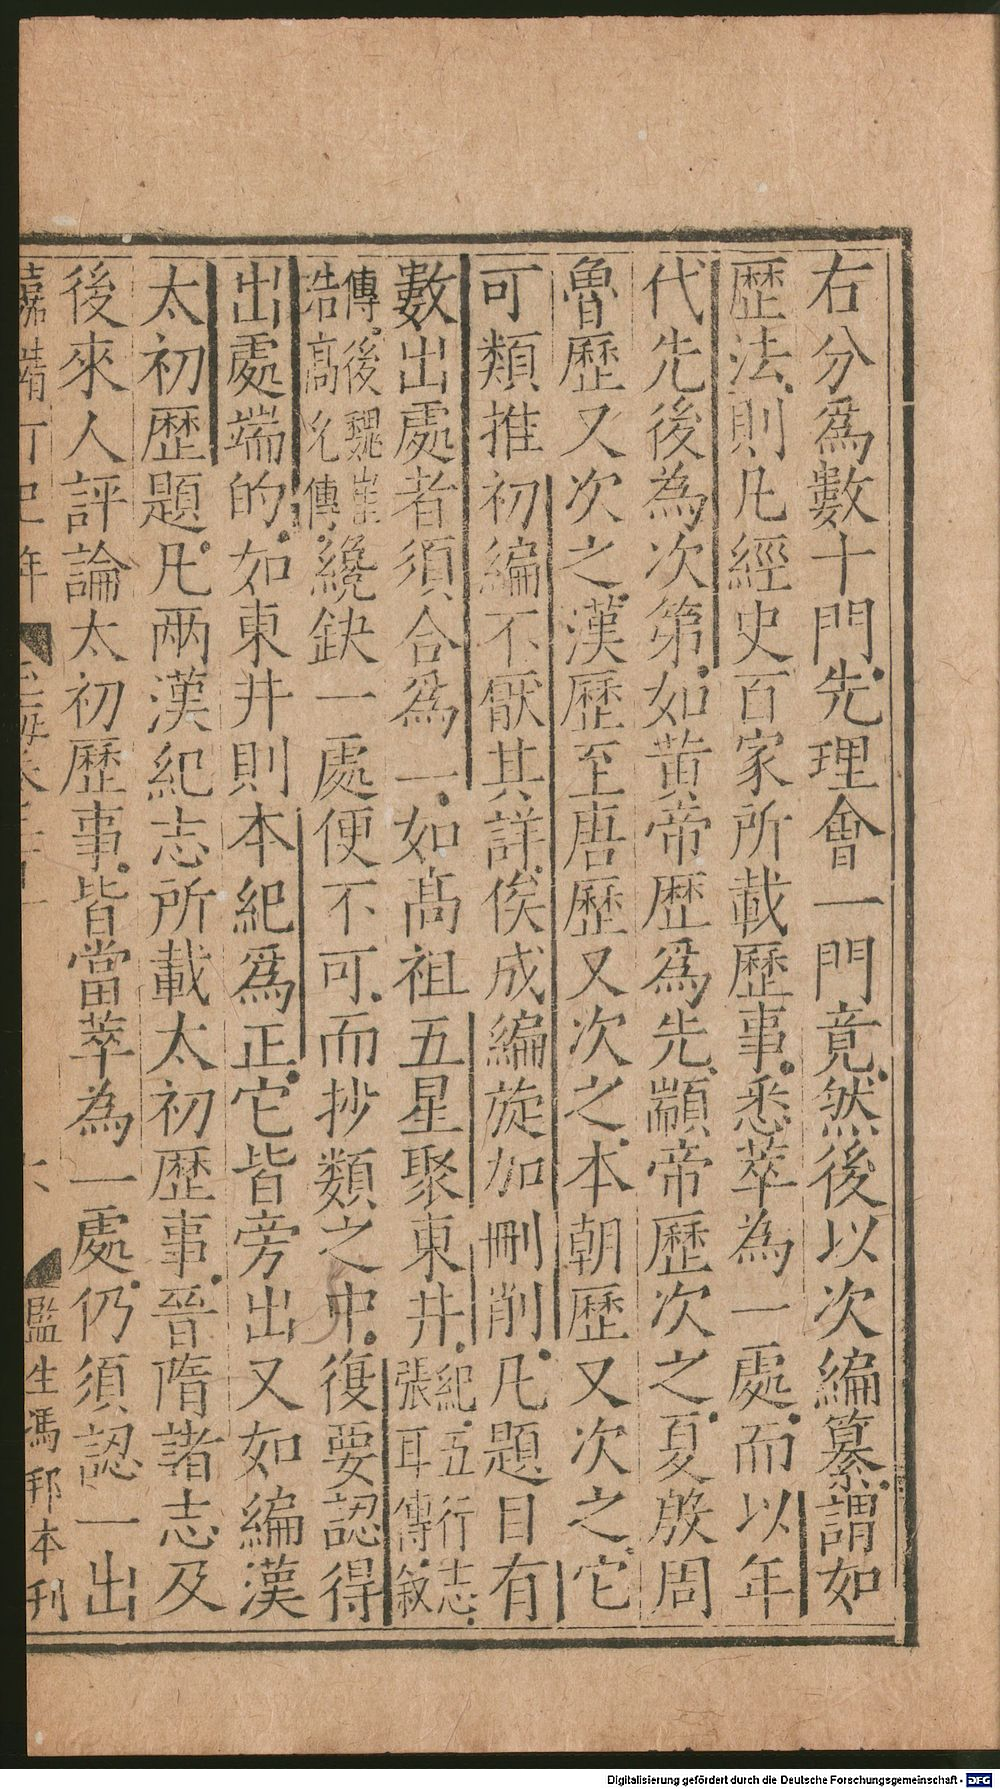 右分爲數十門先理會一門竟然後以次編纂謂如
歷法則凡經史百家所載歷事悉萃為一處而以年
代先後為次第如黄帝歷爲先顓帝歷次之夏殷周
魯歷又次之漢歷至唐歷又次之本朝歷又次之它
可類推初編不厭其詳俟成編旋加刪削凡題目有
數出處者須合爲一如髙祖五星聚東井紀五行志張耳傳敘
傳後魏崔浩高允傳纔缺一處便不可而抄類之中復要認得
出處端的如東井則本紀爲正它皆旁出又如編漢
太初歷題凡兩漢紀志所載太初歷事晉隋諸志及
後來人評論太初歷事皆當萃為一處仍須認一出
監生馮邦本刊
Digitalisierung gefördert durch die Deutsche Forschungsgemeinschaft - DFG